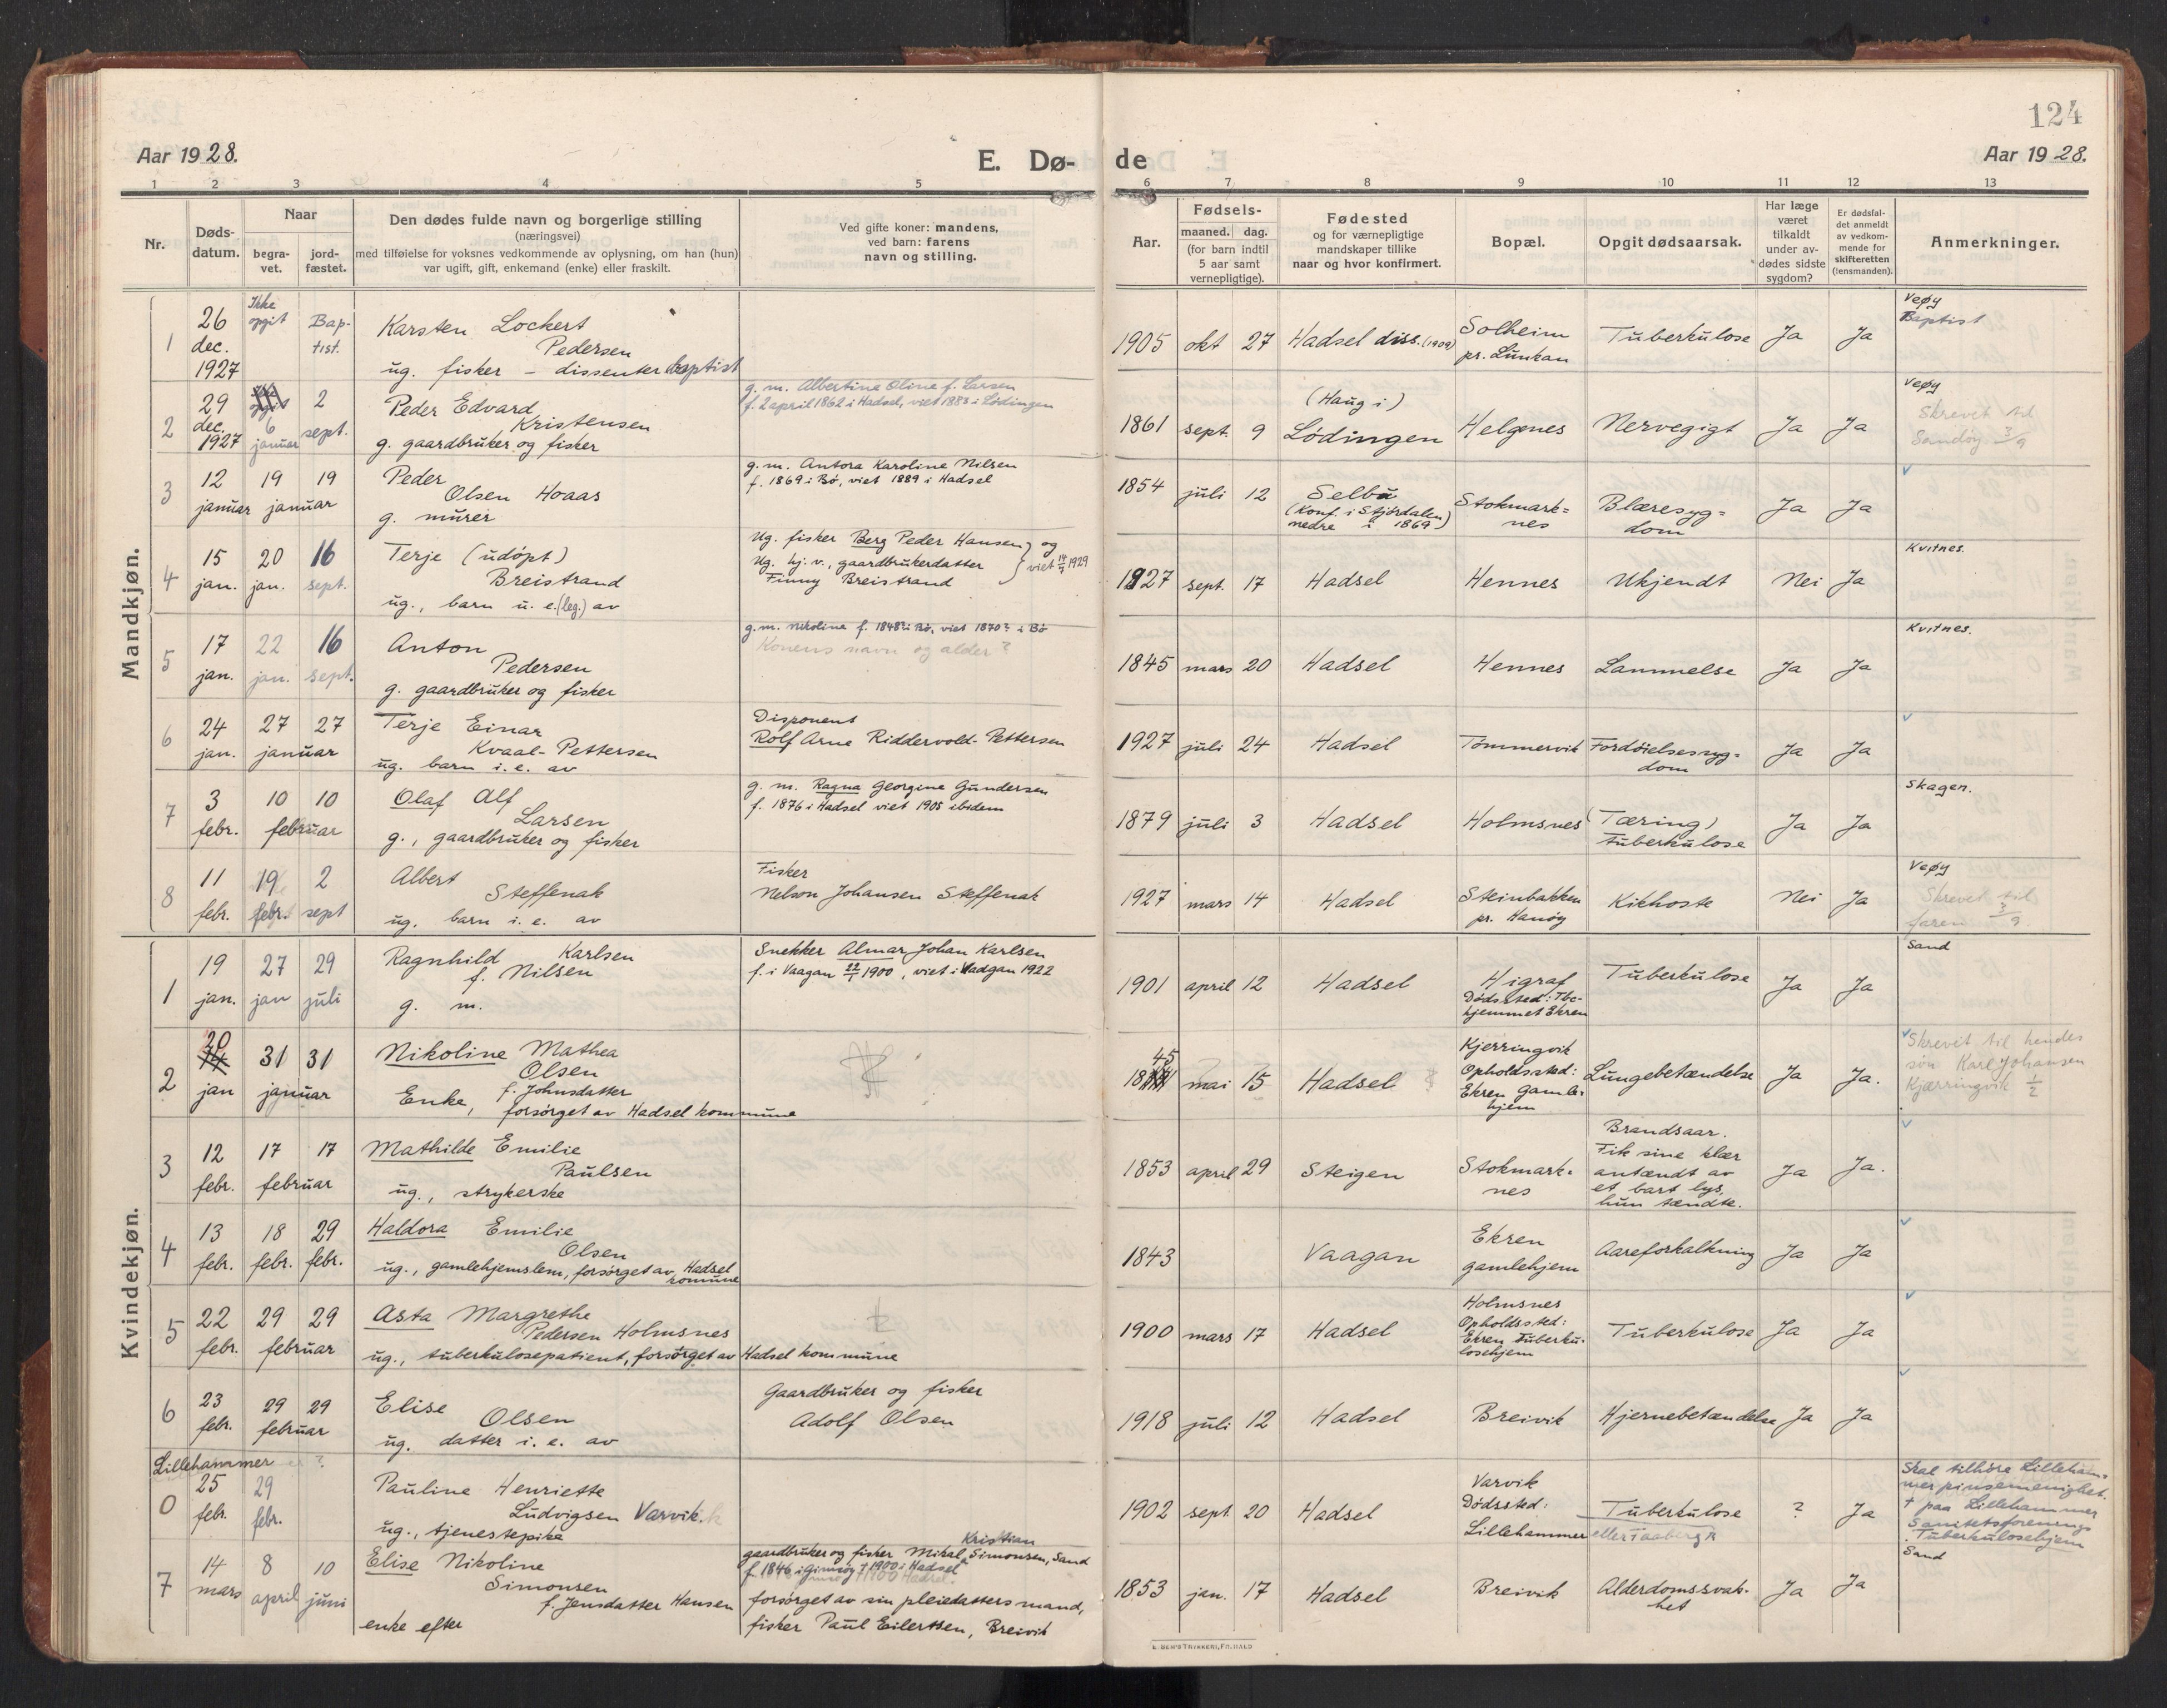 124
Aar 1928.
E. Dø-
de
Aar 1928.
1 2 3 4 5 6 7 8 9 10 11 12 13
Nr.
Døds-
datum.
Naar
begra-
vet.
jord-
fæstet.
Den dødes fulde navn og borgerlige stilling
(næringsvei)
med tilføielse for voksnes vedkommende av oplysning, om han (hun)
var ugift, gift, enkemand (enke) eller fraskilt.
Ved gifte koner: mandens,
ved barn: farens
navn og stilling.
Aar.
Fødsels-
maaned. dag.
(for barn indtil
5 aar samt
vernepligtige).
Fødested
og for værnepligtige
mandskaper tillike
naar og hvor konfirmert.
Bopæl.
Opgit dødsaarsak.
Har læge
været
tilkaldt
under av-
dødes sidste
sygdom?
Er dødsfal-
det anmeldt
av vedkom-
mende for
skifteretten
(lensmanden).
Anmerkninger.
Mandkjøn.
1
26
dec.
1927
Ikke
opgit
Bap-
tist.
Karsten Lockert
Pedersen
ug. fisker - dissenter baptist
1905 okt 27
Hadsel diss. (1909)
Solheim
pr. Lunkan
Tuberkulose
Ja Ja
Veøy
Baptist
2
29
dec.
1927
6
januar
2
sept.
Peder Edvard
Kristensen
g. gaardbruker og fisker
g. m. Albertine Oline f. Larsen
f. 2 april 1862 i Hadsel, viet 1883 i Lødingen
1861 sept. 9
(Haug i)
Lødingen
Helgenes
Nervegigt
Ja Ja
Veøy
Skrevet til
Sandøy 3/9
3
12 19 19
januar januar
Peder
Olsen Hoaas
g. murer
g. m. Antora Karoline Nilsen
f. 1869 i Bø, viet 1889 i Hadsel
1854 juli 12
Selbu
(Konf. i Stjørdalen
nedre i 1869)
Stokmark=
nes
Blæresyg=
dom
Ja Ja
4
15 20 16
jan. jan. sept.
Terje (udøpt)
Breistrand
ug., barn u. e. (leg.) av
Ug. fisker Berg Peder Hansen } og
Ug. hj. v., gaardbrukerdatter } viet 14/7 1929
Finny Breistrand
1927 sept. 17
Hadsel
Hennes
Ukjendt
Nei Ja
Kvitnes.
5
17 22 16
jan. jan. sept.
Anton
Pedersen
g. gaardbruker og fisker
g. m. Nikoline f. 1848? i Bø, viet 1870? i Bø
Konens navn og alder?
1845 mars 20
Hadsel
Hennes
Lammelse
Ja Ja
Kvitnes.
6
24 27 27
jan. januar
Terje Einar
Kvaal-Pettersen
ug. barn i. e. av
Disponent
Rolf Arne Riddervold-Pettersen
1927 juli 24
Hadsel
Tømmervik
Fordøielsessyg=
dom
Ja Ja
7
3 10 10
febr. februar
Olaf Alf
Larsen
g., gaardbruker og fisker
g. m. Ragna Georgine Gundersen
f. 1876 i Hadsel viet 1905 ibidem
1879 juli 3
Hadsel
Holmsnes
(Tæring)
tuberkulose
Ja Ja
Skagen.
8
11 19 2
febr. febr. sept
Albert
Steffenak
ug. barn i. e. av
Fisker
Nelson Johansen Steffenak
1927 mars 14
Hadsel
Steinbakken
pr. Hanøy
Kikhoste
Nei Ja
Veøy
Skrevet til
faren 3/9
Kvindekjøn.
1
19 27 29
jan. jan juli
Ragnhild Karlsen
f. Nilsen
g. m.
Snekker Almar Johan Karlsen
f. i Vaagan 22/1 1900, viet i Vadgan 1922
1901 april 12
Hadsel
Higraf
Dødssted: Tbc-
hjemmet Ekren
Tuberkulose
Ja Ja
Sand
2
30 31 31
jan januar
Nikoline Mathea
Olsen
f. Johnsdatter
Enke, forsørget av Hadsel kommune
1845 mai 15
Hadsel
Kjerringvik
Opholdssted:
Ekren Gamle-
hjem
Lungebetændelse
Ja Ja.
Skrevet til hendes
søn Karl Johansen
Kjærringvik 1/2
3
12 17 17
febr. februar
Mathilde Emilie
Paulsen
ug., strykerske
1853 april 29
Steigen
Stokmark=
nes
Brandsaar.
Fik sine klær
antændt av
et bart lys,
hun tændte.
Ja Ja.
4
13 18 29
febr. febr. febr.
Haldora Emilie
Olsen
ug., gamlehjemslem, forsørget av Hadsel
komune
1843
Vaagan
Ekren
gamlehjem
Aareforkalkning
Ja Ja
5
22 29 29
febr. februar
Asta Margrethe
Pedersen Holmsnes
ug., tuberkulosepatient, forsørget av Hadsel kommune
1900 mars 17
Hadsel
Holmsnes
Opholdssted:
Ekren Tuberku-
losehjem
Tuberkulose
Ja Ja
6
23 29 29
febr. februar
Elise
Olsen
ug. datter i. e. av
Gaardbruker og fisker
Adolf Olsen
1918 juli 12
Hadsel
Breivik
Hjernebetændelse
Ja Ja
Lillehammer ?
0
25 29
febr. febr.
Pauline Henriette
Ludvigsen Varvik.
ug., tjenestepike
1902 sept. 20
Hadsel
Varvik
Dødssted:
Lillehammer eller Faaberg?
Tuberkulose
? Ja
Skal tilhøre Lilleham=
mer pinsemenighet.
† paa Lillehammer
Sanitetsforenings
Tuberkulosehjem
7
14 8 10
mars april juni
Elise Nikoline
Simonsen
f. Jensdatter Hansen
enke efter
Kristian
gaardbruker og fisker Mikal Simonsen, Sand
f. 1846 i Gimsøy † 1900 i Hadsel
forsørget av sin pleiedatters mand,
fisker Paul Eilertsen, Breivik
1853 jan. 17
Hadsel
Breivik
Alderdomssvak-
het
Ja Ja
Sand